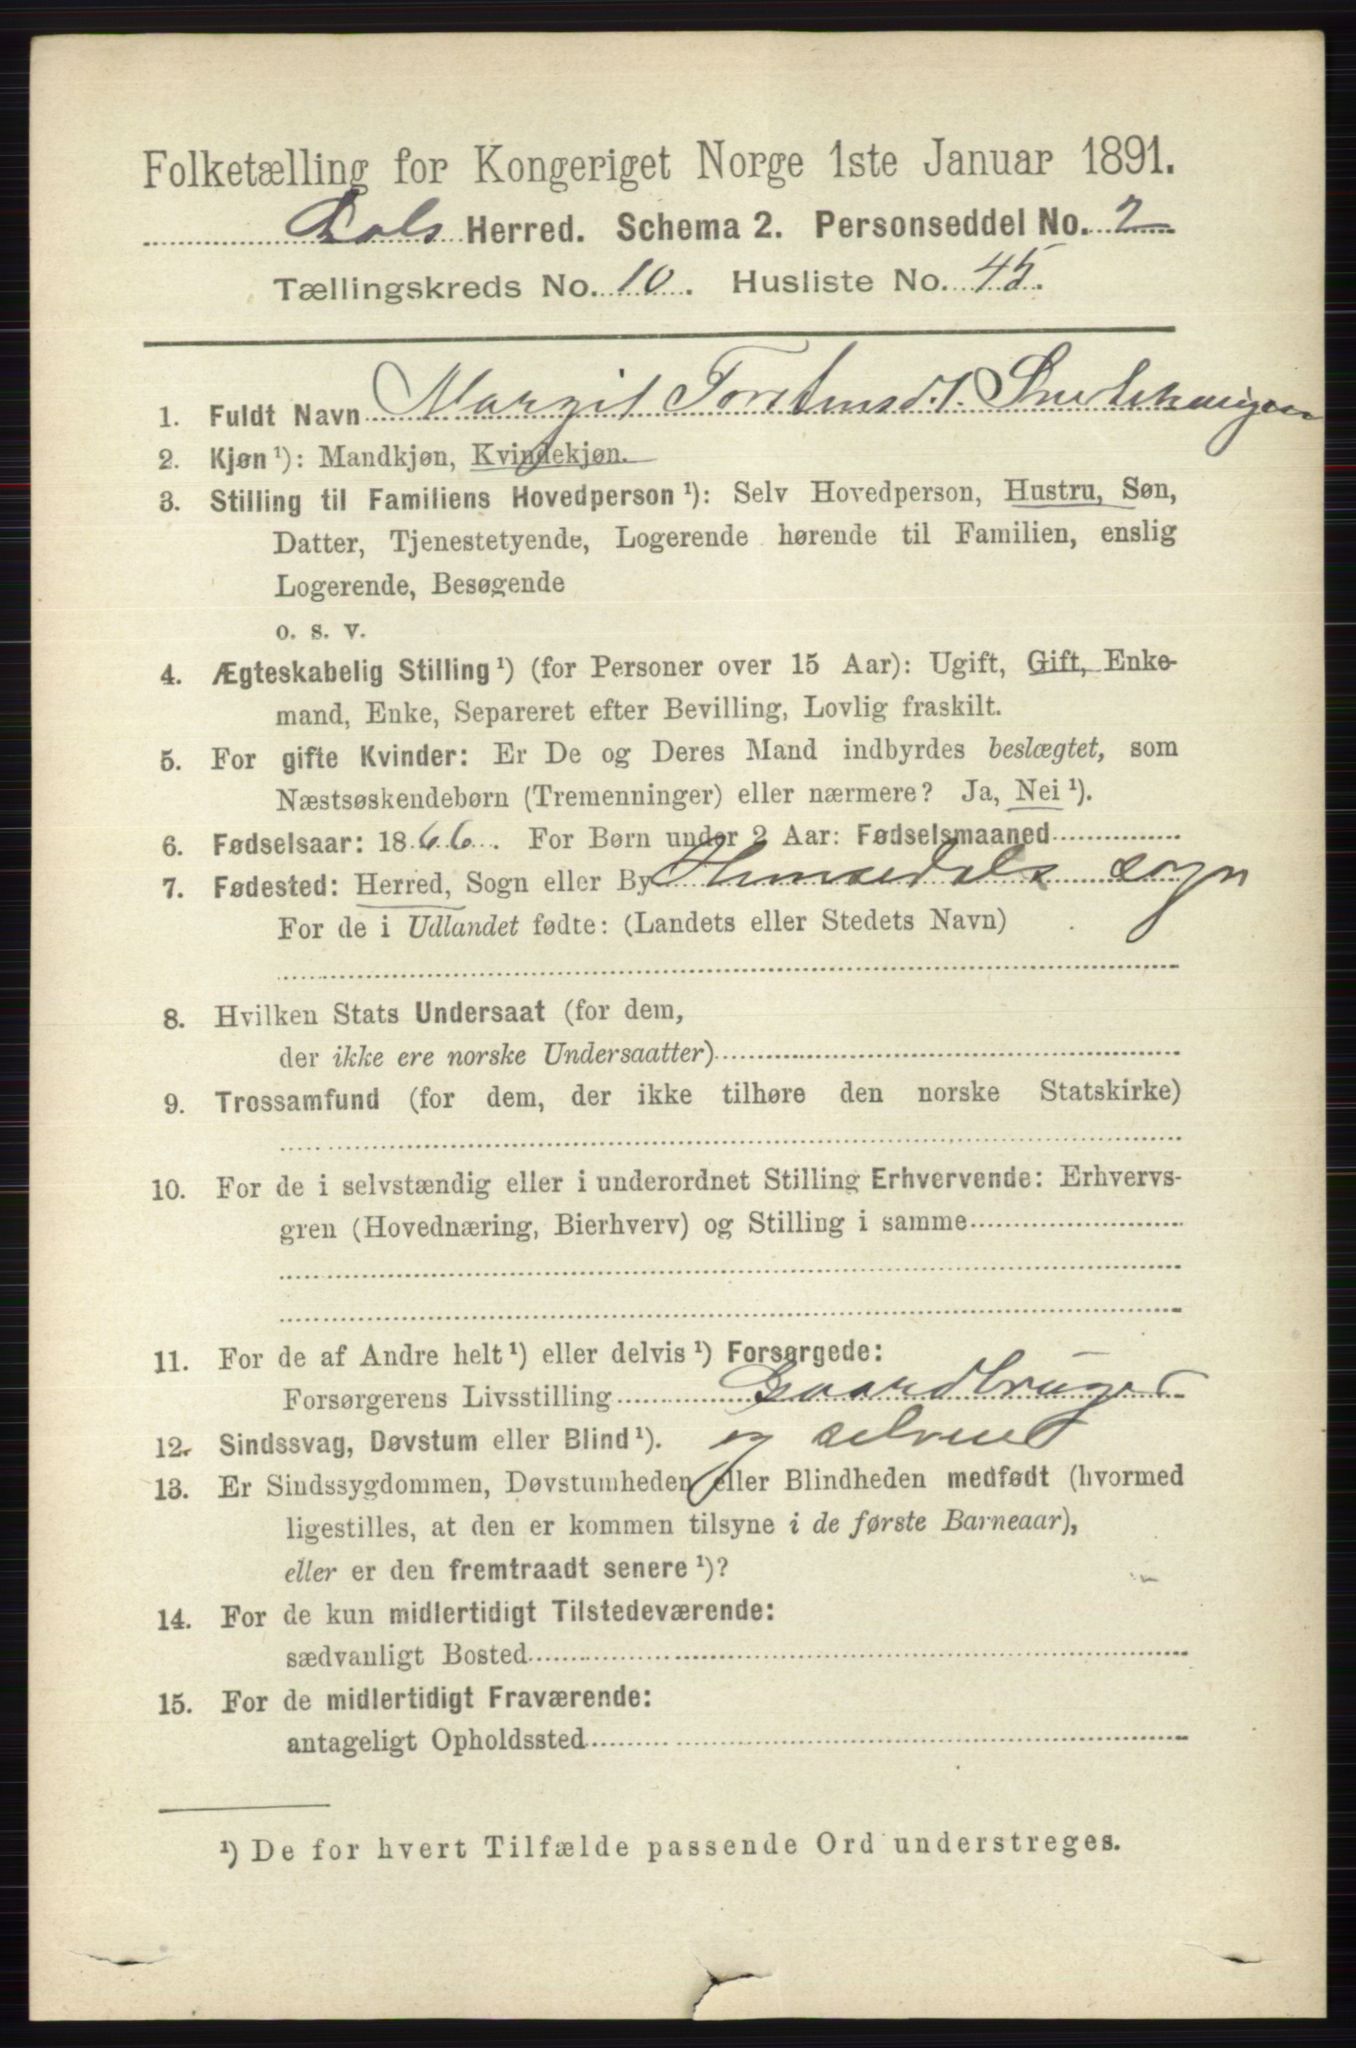 Folketælling for Kongeriget Norge 1ste Januar 1891.
Aals Herred. Schema 2. Personseddel No. 2
Tællingskreds No. 10. Husliste No. 45.
1. Fuldt Navn Margit Torstensd.
2. Kjøn ¹): Mandkjøn, Kvindekjøn.
3. Stilling til Familiens Hovedperson ¹): Selv Hovedperson, Hustru, Søn,
Datter, Tjenestetyende, Logerende hørende til Familien, enslig
Logerende, Besøgende
o. s. v.
4. Ægteskabelig Stilling ¹) (for Personer over 15 Aar): Ugift, Gift, Enke-
mand, Enke, Separeret efter Bevilling, Lovlig fraskilt.
5. For gifte Kvinder: Er De og Deres Mand indbyrdes beslægtet, som
Næstsøskendebørn (Tremenninger) eller nærmere? Ja, Nei ¹).
6. Fødselsaar: 1866. For Børn under 2 Aar: Fødselsmaaned
7. Fødested: Herred, Sogn eller By Hemsedals sogn
For de i Udlandet fødte: (Landets eller Stedets Navn)
8. Hvilken Stats Undersaat (for dem,
der ikke ere norske Undersaatter)
9. Trossamfund (for dem, der ikke tilhøre den norske Statskirke)
10. For de i selvstændig eller i underordnet Stilling Erhvervende: Erhvervs-
gren (Hovednæring, Bierhverv) og Stilling i samme
11. For de af Andre helt ¹) eller delvis ¹) Forsørgede:
Forsørgerens Livsstilling Gaardbruger
12. Sindssvag, Døvstum eller Blind ¹). og selveier
13. Er Sindssygdommen, Døvstumheden eller Blindheden medfødt (hvormed
ligestilles, at den er kommen tilsyne i de første Barneaar),
eller er den fremtraadt senere ¹)?
14. For de kun midlertidigt Tilstedeværende:
sædvanligt Bosted
15. For de midlertidigt Fraværende:
antageligt Opholdssted
¹) De for hvert Tilfælde passende Ord understreges.